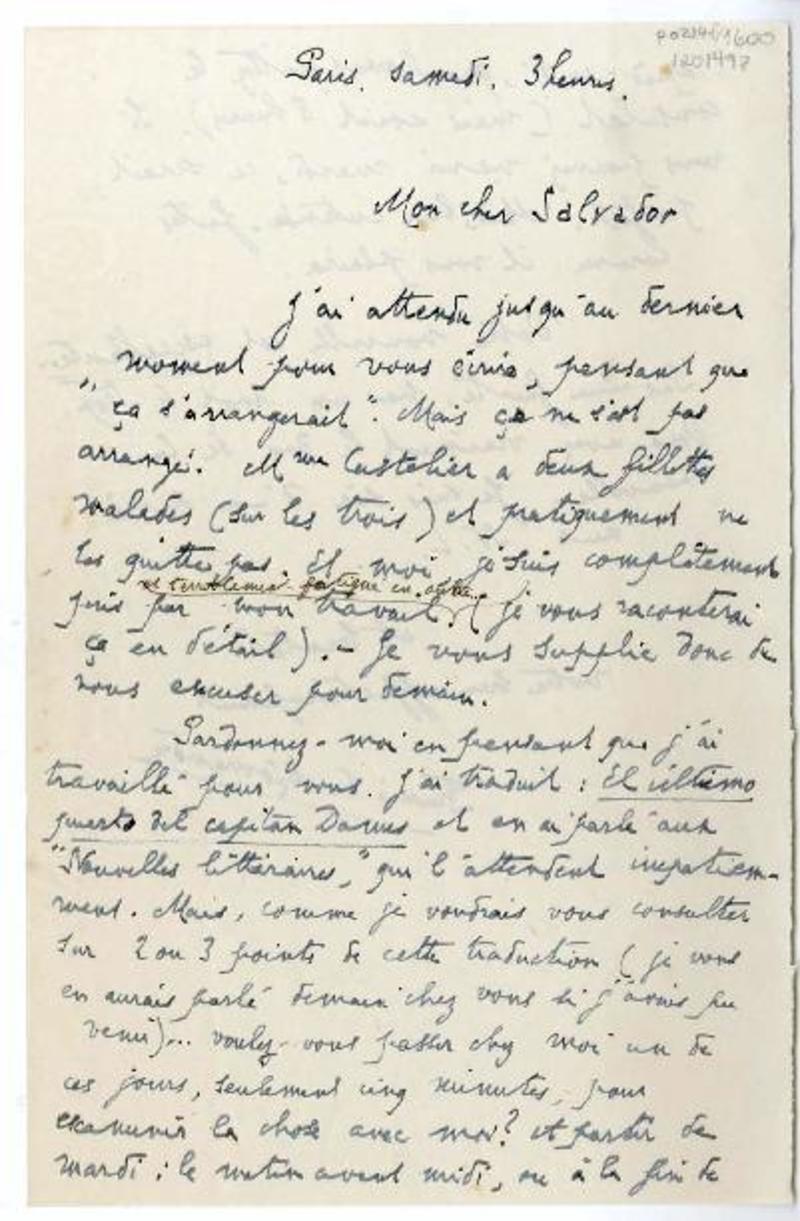 1600
1201497
Paris. samedi. 3 heures.
Mon cher Salvador
J'ai attendu jusqu'au dernier
moment pour vous écrire, pensant que
"ça s'arrangerait". Mais ça ne s'est pas
arrangé. Mme Castelier a deux fillettes
malades (sur les trois) et pratiquement ne
les quitte pas. Et moi je suis complètement
et terriblement fatigué en outre
pris par mon travail. (je vous raconterai
ça en détail). - Je vous supplie donc de
nous excuser pour demain.
Pardonnez-moi en pensant que j'ai
travaillé pour vous. J'ai traduit : El último
puerto del capitan Dawes et en ai parlé aux
"Nouvelles littéraires," qui l'attendent impatiem-
ment. Mais, comme je voudrais vous consulter
sur 2 ou 3 points de cette traduction (je vous
en aurais parlé demain chez vous si j'avais pu
venir)... voulez-vous passer chez moi un de
ces jours, seulement cinq minutes, pour
examiner la chose avec moi? et partir de
mardi : le matin avant midi, ou à la fin de